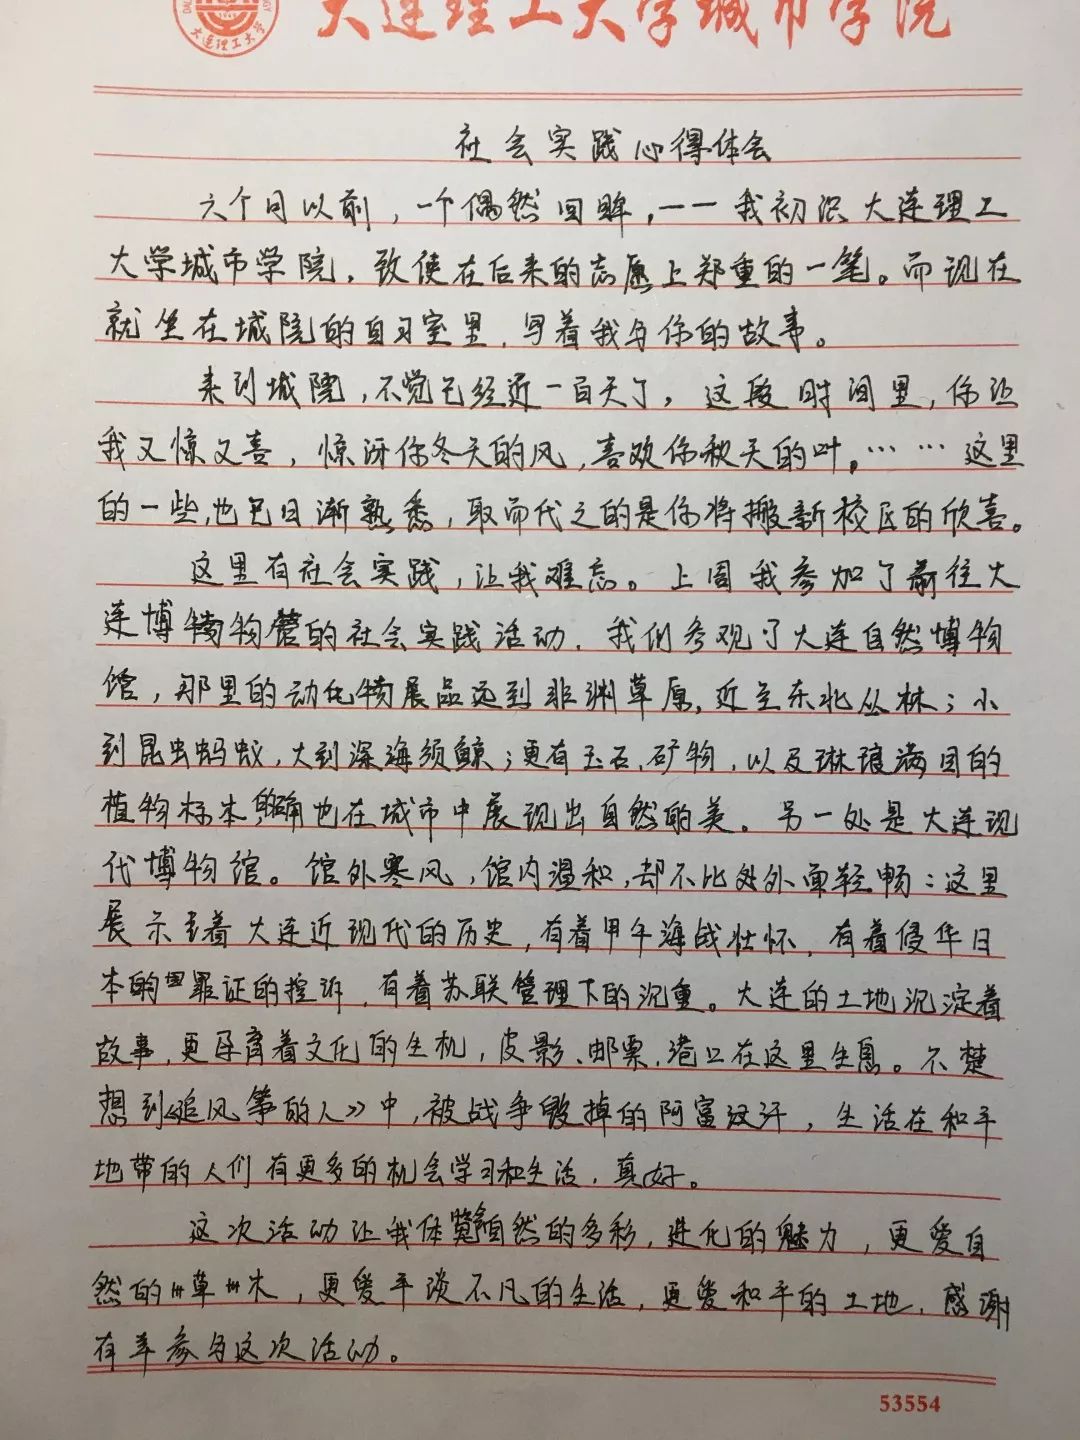 大连理工大学城市学院
大连理工大学
社会实践心得体会
六个月以前，一个偶然回眸，——我初识大连理工
大学城市学院，致使在后来的志愿上郑重的一笔。而现在
就坐在城院的自习室里，写着我与你的故事。
来到城院，不觉已经近一百天了，这段时间里，你让
我又惊又喜，惊讶你冬天的风，喜欢你秋天的叶，……这里
的一些，也已日渐熟悉，取而代之的是你将搬新校区的欣喜。
这里有社会实践，让我难忘。上周我参加了前往大
连博物馆的社会实践活动，我们参观了大连自然博物
馆，那里的动化物展品远到非洲草原，近至东北丛林；小
到昆虫蚂蚁，大到深海须鲸；更有玉石、矿物，以及琳琅满目的
植物标本的确也在城市中展现出自然的美。另一处是大连现
代博物馆。馆外寒风，馆内温和，却不比外面轻畅：这里
展示着大连近现代的历史，有着甲午海战壮怀，有着侵华日
本的罪证的控诉，有着苏联管理下的沉重。大连的土地沉淀着
故事，更孕育着文化的生机，皮影、邮票、港口在这里生息。不楚
想到《追风筝的人》中，被战争毁掉的阿富汗，生活在和平
地带的人们有更多的机会学习和生活，真好。
这次活动让我体会自然的多彩，进化的魅力，更爱自
然的草木，更爱平淡不凡的生活，更爱和平的土地，感谢
有幸参与这次活动。
53554